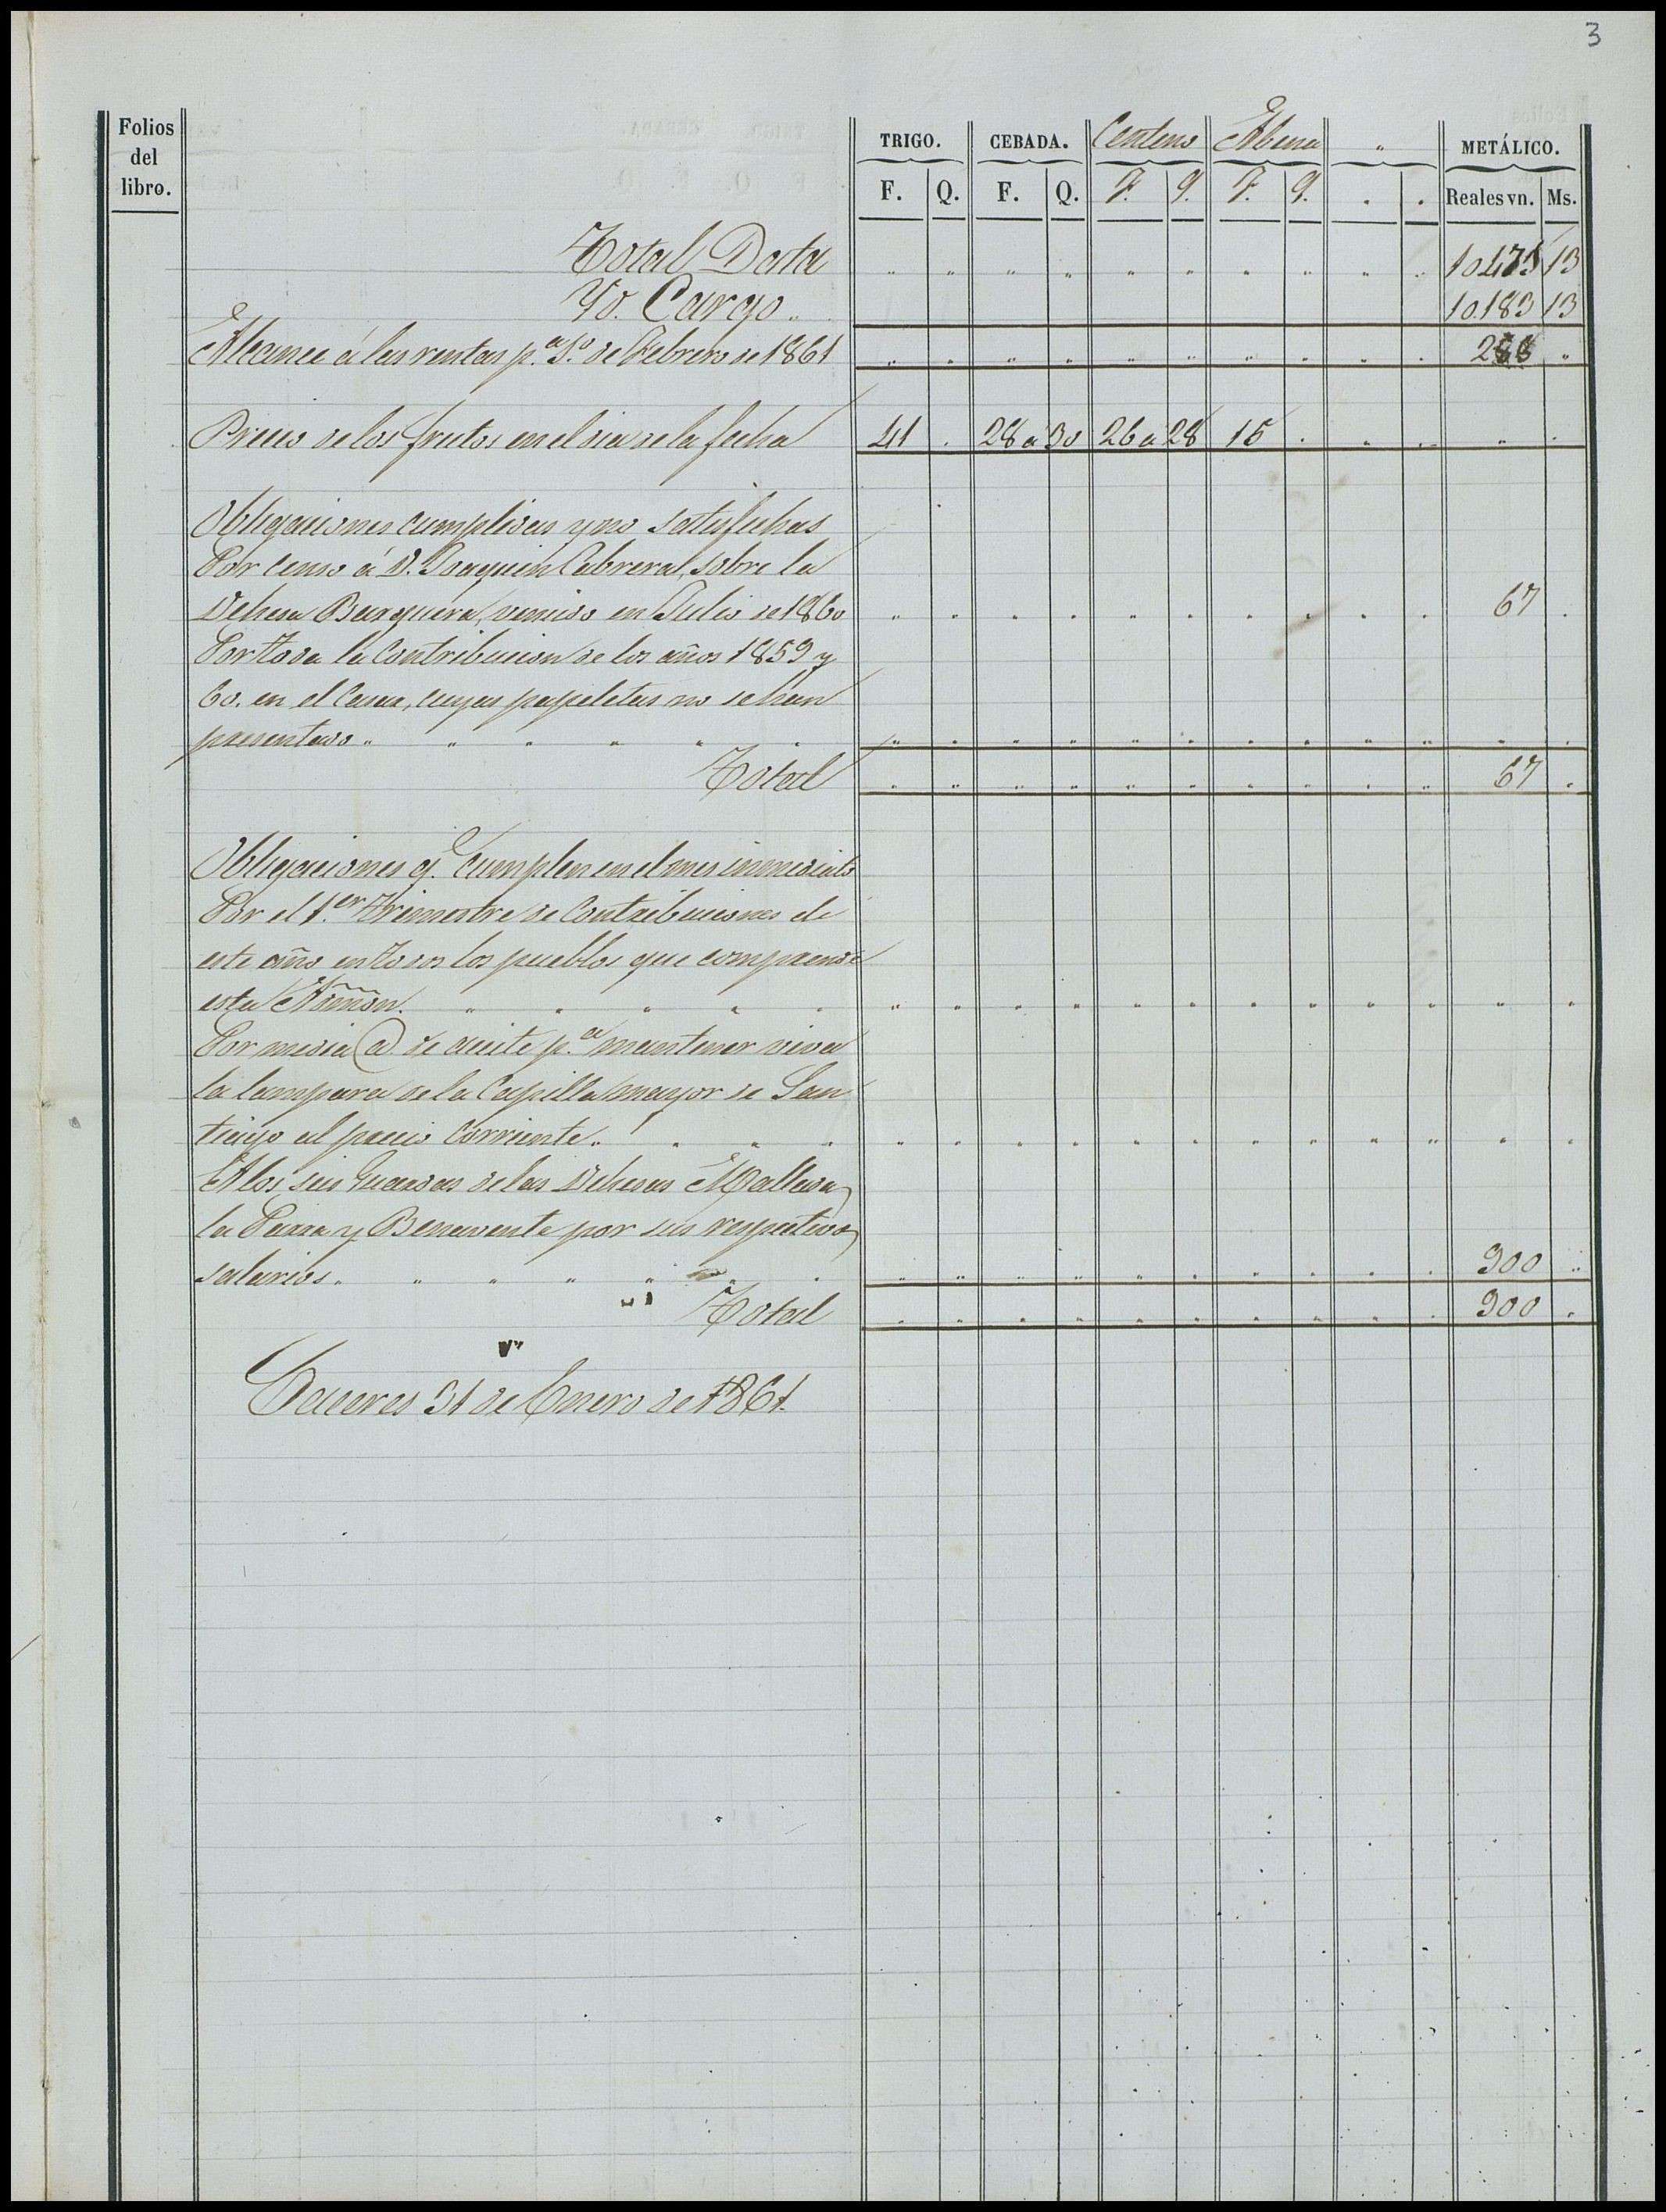 3
Folios del libro.
TRIGO. CEBADA. Centeno Abena " METÁLICO.
F. Q. F. Q. F. Q. F. Q. . . Reales vn. Ms.
Total Data " " " " " " " " " " 13
Yd. Cargo " 10.183 13
Alcance á las rentas p.ª 1.º de Febrero de 1861 " " " " " " " " " " 288 "
Precio de los frutos en el dia de la fecha 41 . 28 a 30 26 a 28 15 . . . " .
Obligaciones cumplidas y no satisfechas
Por censo á D. Joaquin Cabrera, sobre la
Dehesa Burquera, vencido en Julio de 1860 " " " " " " " " " " 67 .
Por toda la Contribucion de los años 1859 y
60. en el Casar, cuyas papeletas no se han
presentado " " " " " " " " " " " " " " " " " .
Total " " " " " " " " " " 67 "
Obligaciones q.e cumplen en el mes inmediato
Por el 1.er Trimestre de Contribuciones de
este año en todos los pueblos que comprende
esta Admón. " " " " " " " " " " " " " " " " "
Por media @ de aceite p.ª mantener viva
la lampara de la Capilla mayor de San
tiago al precio corriente. " " " " " " " " " " " " " " "
A los seis Guardas de las Dehesas
la Parra y Benavente por sus respectivos
salarios. " " " " " " " " " " " " " " " " 900 "
Total " " " " " " " " " " 900 "
Caceres 31 de Enero de 1861.